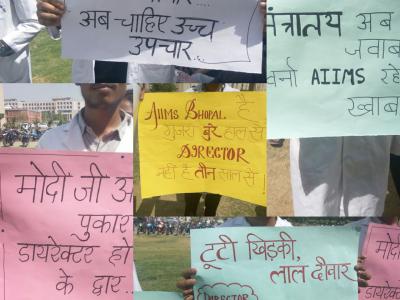 अब चाहिए उच्च
उपचार...
मंत्रालय अब
जवाब
वर्ना AIIMS रहे
ख्वाब
AIIMS BHOPAL है
गुजरा बुरे हाल से
DIRECTOR
नहीं है तीन साल से !
मोदी जी अ
पुकार
डायरेक्टर हो
के द्वार..
टूटी खिड़की,
लाल दीवार
DIRECTOR
मोदी
डायरे
के